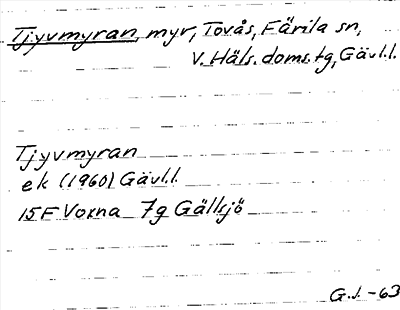 Tjyvmyran, myr, Tovås, Färila sn,
V. Häls. doms. tg, Gävl.l.
Tjyvmyran
ek (1960) Gävl.l.
15F Voxna 7g Gällsjö
G.J. -63